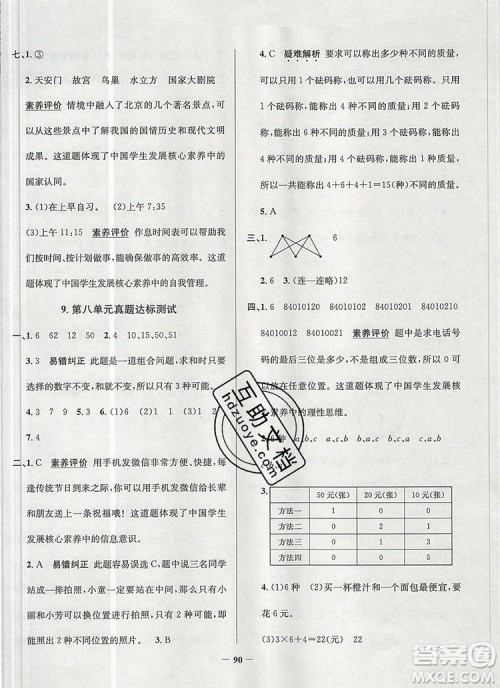 七、1. ③
2. 天安门 故宫 鸟巢 水立方 国家大剧院
素养评价 情境中融入了北京的几个著名景点,可
以从这些景点中了解我国的国情历史和现代文明
成果。这道题体现了中国学生发展核心素养中的
国家认同。
3. (1)在上早自习。 (2)上午 7:35
(3)上午 11:15 素养评价 作息时间表可以帮助我
们按时、按计划做事,能确保做事的高效率。这道
题体现了中国学生发展核心素养中的自我管理。
9. 第八单元真题达标测试
一、1. 6 62 12 50 2. 4 10、15、50、51
3. 4 易错纠正 此题是一道组合问题,求和时所
选择的数字不变,和就不变,与数字的顺序无关。
4. 3 7 9 5. 3 6. (1)2 (2)2 (3)4
7. 4
二、1. C 素养评价 用手机发微信非常方便、快捷,每
逢传统节日到来之际,你可以用手机发微信给长辈
和朋友送上一句祝福。这道题体现了中国学生发
展核心素养中的信息意识。
2. A 易错纠正 此题容易误选 C,题中说三名同学
站成一排拍照,小童一定要站在两端中的一端,而
小丽和小芳可以换位置。因此左端和右端都可以
拍出 2 种不同位置的照片。 3. B
4. C 疑难解析 要求可以称出多少种不同的质
量,可以用 1 个砝码称、2 个砝码称、3 个砝码称、
4 个砝码称。用 1 个砝码称,能称出 4 种不同的
质量;用 2 个砝码称,能称出 6 种不同的质量;用
3 个砝码称,能称出 4 种不同的质量;用 4 个砝码
称,能称出 1 种不同的质量。
所以一共能称出 4+6+4+1=15(种)不同的质量。
5. A
三、1.
2. 6 (连一连略) 3. (1)6 (2)2
四、1. 6 84010012 84010021 84010120 84010102
84010210 84010201 素养评价 题中是求电话号
码的可能数,实际上是不同的三位数组成三位数有
多少种可能,最高位不是 0,而这三个数字中的 0 可
以放在任意位置。这道题体现了中国学生发展核
心素养中的理性思维。
2. 6种 a、b、c a、c、b b、a、c
3.
50 元(张) 20 元(张) 10 元(张)
方法一 1 0 0
方法二 0 2 1
方法三 0 1 3
方法四 0 0 5
4. (1)6 种 (2)买一杯橙汁和一个汉堡包最少要
花 6 元。
(3)3×6+4=22(元) 22 元
90
互助文档
hdzuoye.com
答案圈
MXQE.COM